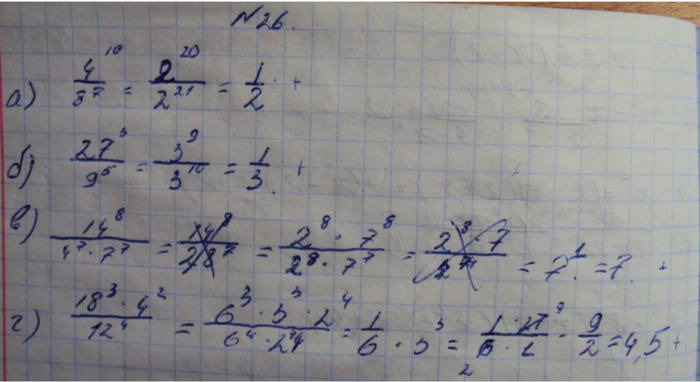 №26.
а) 4^10/8^7 = 2^20/2^21 = 1/2 +
б) 27^3/9^5 = 3^9/3^10 = 1/3. +
в) 14^8/4^7·7^7 = 14^8/28^7 = 2^8·7^8/2^8·7^7 = 2^8·7/2^7 = 7^1. = 7. +
г) 18^3·4^2/12^4 = 6^3·3^3·2^4/6^4·2^4 = 1/6·3^3 = 1·27 9/6·1 2 = 9/2 = 4,5 +